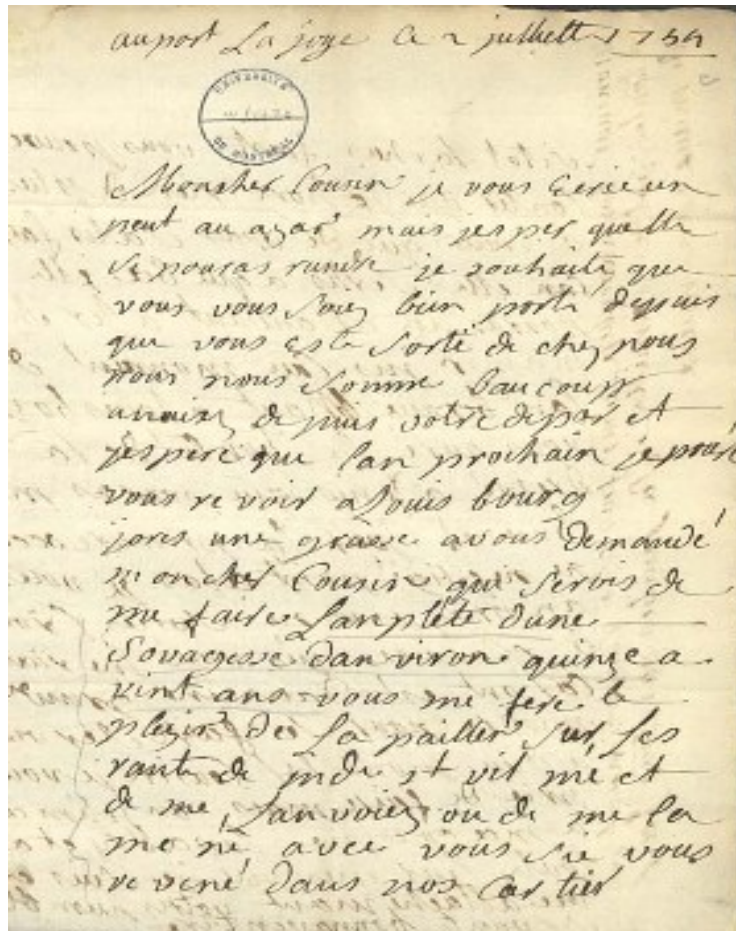 au port La joye Ce 2 juillett 1754
UNIVERSITÉ
DE MONTRÉAL
Moncher Cousin je vous Ecrie un
peut au azar mais jesper quelle
se pouras randre je souhaite que
vous vous soiez bien porté depuis
que vous este sorti de chez nous
nous nous somme baucoupt
anuiez depuis votre depar et
jespere que lan prochain je pouré
vous re voir a Louis bourg
jores une grasse a vous demandé
mon cher Cousin qui serois de
me faire Lanplete dune
Sovagesse danviron quinze a
vint ans vous me feré le
plezir de La pailler sur Les
rante de
et
de me Lanvoiez ou de me la
mené avec vous sie vous
revené dans nos Cartier